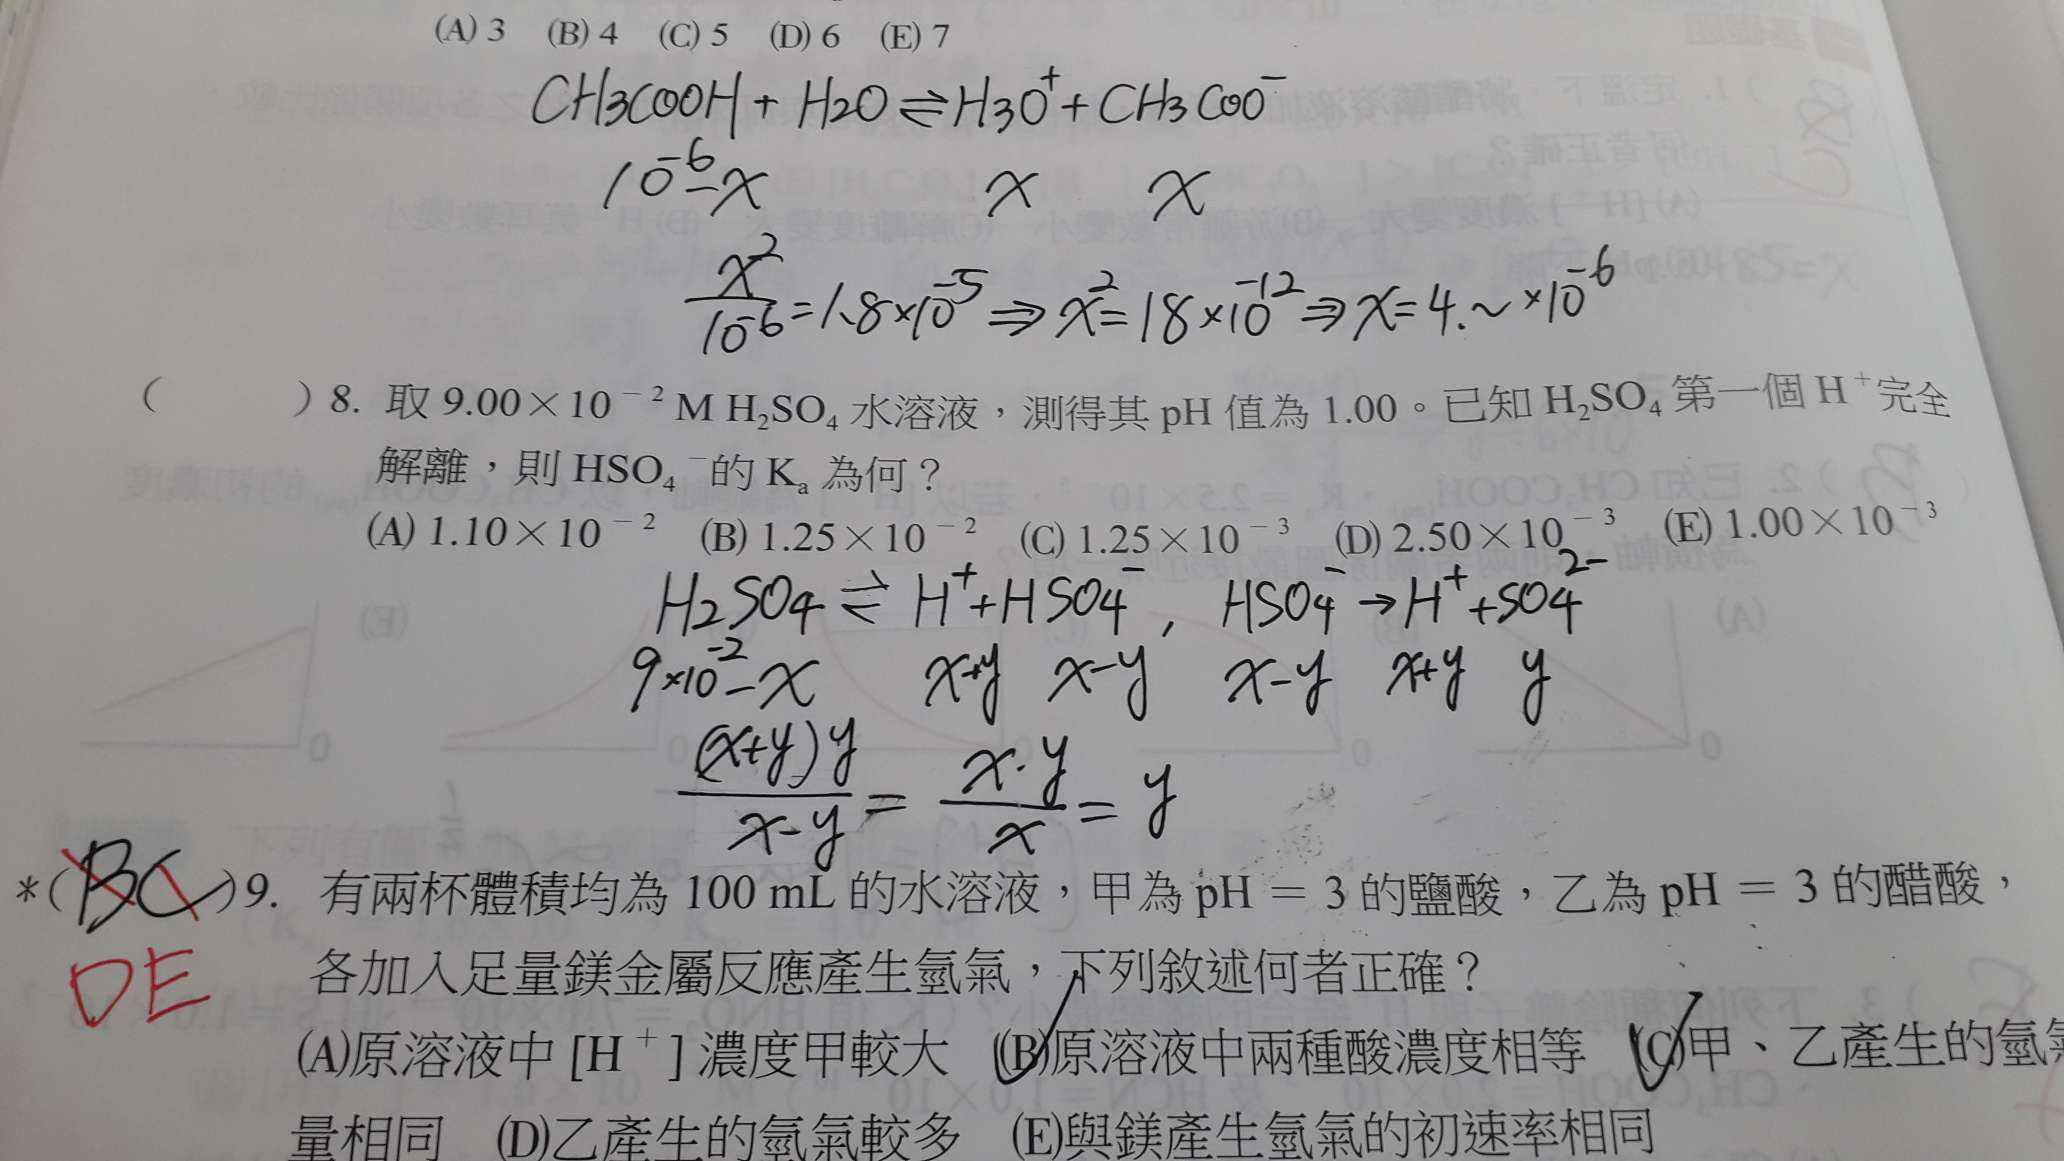 (A) 3 (B) 4 (C) 5 (D) 6 (E) 7
CH3COOH + H2O ⇌ H3O⁺ + CH3COO⁻
10⁻⁶-x x x
x²/10⁻⁶ = 1.8×10⁻⁵ ⇒ x² = 18×10⁻¹² ⇒ x = 4.~×10⁻⁶
( ) 8. 取 9.00×10⁻² M H₂SO₄ 水溶液，測得其 pH 值為 1.00。已知 H₂SO₄ 第一個 H⁺ 完全
解離，則 HSO₄⁻ 的 Kₐ 為何？
(A) 1.10×10⁻² (B) 1.25×10⁻² (C) 1.25×10⁻³ (D) 2.50×10⁻³ (E) 1.00×10⁻³
H2SO4 ⇌ H⁺ + HSO4⁻ , HSO4⁻ → H⁺ + SO4²⁻
9×10⁻²-x x+y x-y x-y x+y y
(x+y)y/x-y = x·y/x = y
*(BC) 9. 有兩杯體積均為 100 mL 的水溶液，甲為 pH = 3 的鹽酸，乙為 pH = 3 的醋酸，
DE 各加入足量鎂金屬反應產生氫氣，下列敘述何者正確？
(A)原溶液中 [H⁺] 濃度甲較大 (B)原溶液中兩種酸濃度相等 (C)甲、乙產生的氫氣
量相同 (D)乙產生的氫氣較多 (E)與鎂產生氫氣的初速率相同